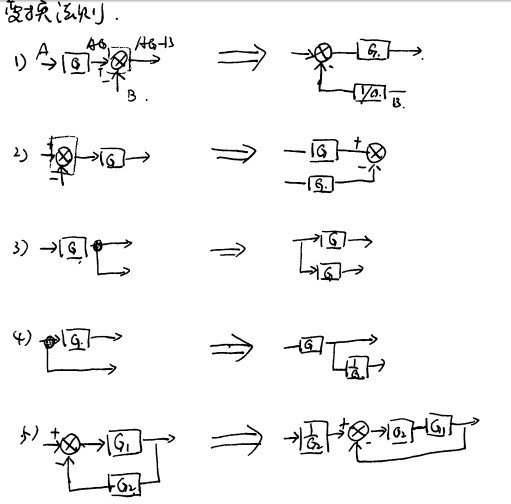 变换法则.
1) A G AG AG-B + - B. - G 1/G B
2) + - G G + - G
3) G G G
4) G G 1/G
5) + - G₁ G₂ 1/G₂ + - G₂ G₁